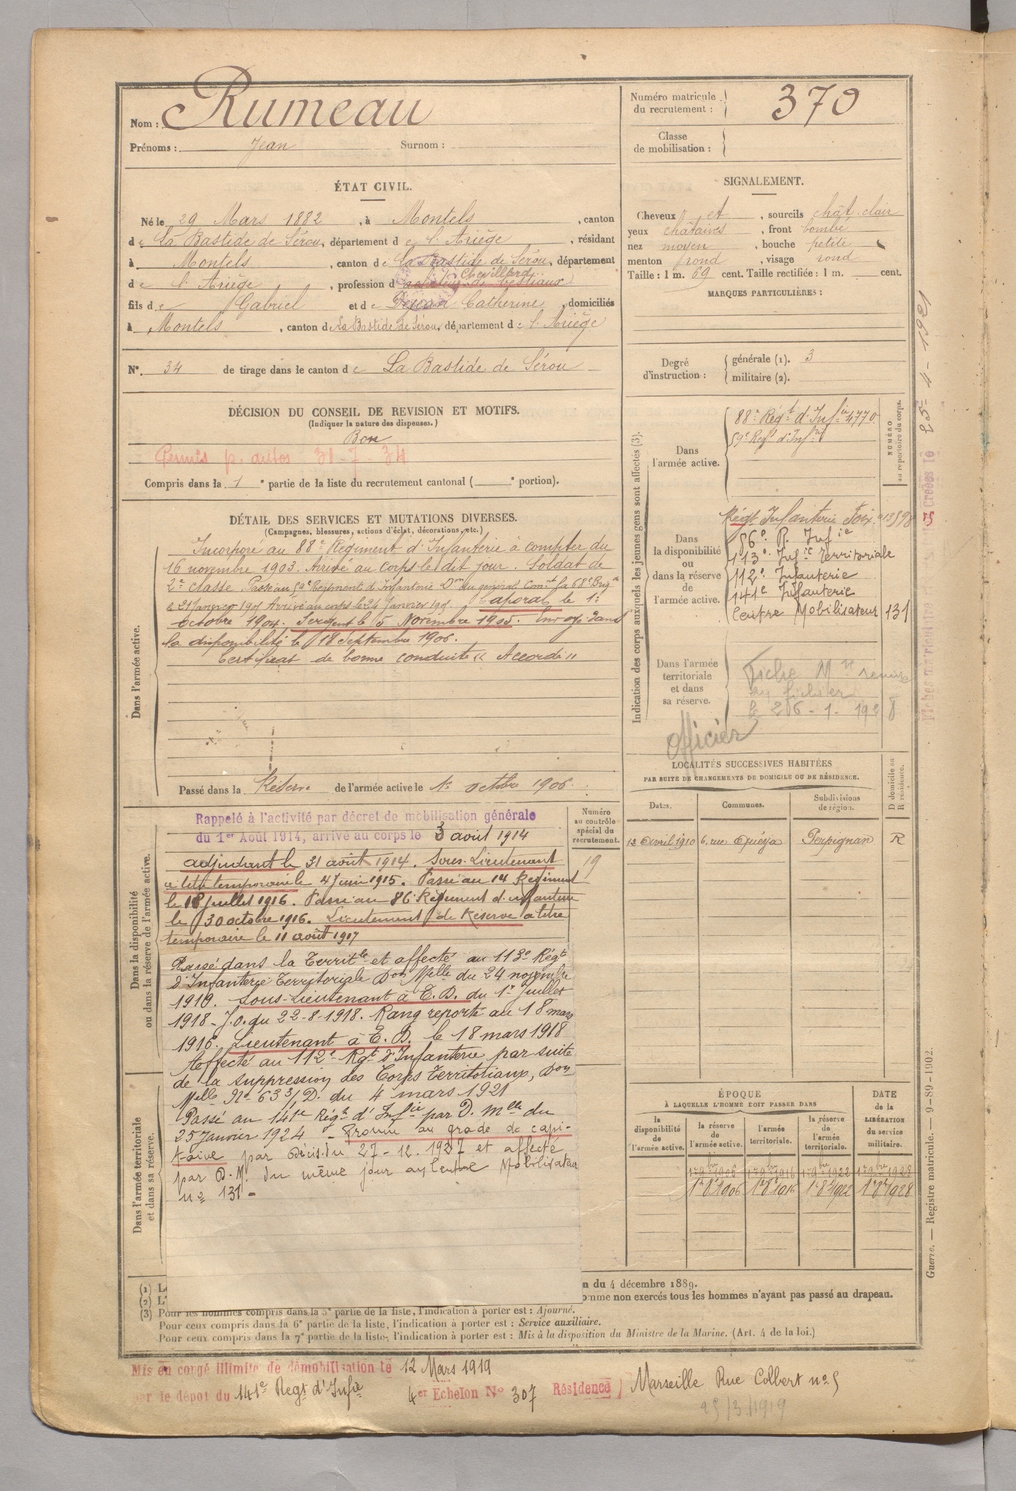 Nom : Rumeau
Prénoms : Jean Surnom :
Numéro matricule du recrutement : 370
Classe de mobilisation :
ÉTAT CIVIL.
Né le 29 Mars 1882, à Montels, canton
de La Bastide de Sérou, département de l'Ariège, résidant
à Montels, canton de La Bastide de Sérou, département
de l'Ariège, profession d Chevillard
fils de Gabriel et de Catherine, domiciliés
à Montels, canton de La Bastide de Sérou, département de l'Ariège
N° 34 de tirage dans le canton de La Bastide de Sérou
SIGNALEMENT.
Cheveux et, sourcils chât. clair
yeux châtaines, front bombé
nez moyen, bouche petite
menton rond, visage rond
Taille : 1 m. 69 cent. Taille rectifiée : 1 m. cent.
MARQUES PARTICULIÈRES :
Degré d'instruction : générale (1). 3
militaire (2).
DÉCISION DU CONSEIL DE REVISION ET MOTIFS.
(Indiquer la nature des dispenses.)
Bon
Permis p. autos 31-7-34
Compris dans la 1e partie de la liste du recrutement cantonal ( e portion).
DÉTAIL DES SERVICES ET MUTATIONS DIVERSES.
(Campagnes, blessures, actions d'éclat, décorations, etc.)
Dans l'armée active.
Incorporé au 88e Régiment d'Infanterie à compter du
16 novembre 1903. Arrivé au corps le dit jour. Soldat de
2e classe. Passé au 59e Régiment d'Infanterie Don du général Comt la 68e Brigde
Arrivé au corps le 24 Janvier Caporal le 1er
Octobre 1904. Sergent le 5 Novembre 1905. Envoyé dans
la disponibilité le 18 Septembre 1906.
Certificat de bonne conduite « Accordé »
Passé dans la Réserve de l'armée active le 1er octobre 1906.
Indication des corps auxquels les jeunes gens sont affectés (3).
NUMÉRO au répertoire du corps.
Dans l'armée active.
88e Régt d'Infie 4770
59e Régt d'Inf
Dans la disponibilité ou dans la réserve de l'armée active.
Régt Infanterie Foix
86e R. Infie
113e Infie Territoriale
112e Infanterie
141e Infanterie
Centre Mobilisateur 131
Dans l'armée territoriale et dans sa réserve.
Fiche Mle remise
au fichier
le 26-1-1928
officier
LOCALITÉS SUCCESSIVES HABITÉES
PAR SUITE DE CHANGEMENTS DE DOMICILE OU DE RÉSIDENCE.
Dates. Communes. Subdivisions de région. D domicile ou R résidence.
12 avril 1910 6, rue Perpignan R
Dans la disponibilité ou dans la réserve de l'armée active.
Numéro au contrôle spécial du recrutement.
19
Rappelé à l'activité par décret de mobilisation générale
du 1er Août 1914, arrivé au corps le 3 août 1914
adjudant le 31 août 1914. Sous-Lieutenant
à titre temporaire le 4 juin 1915. Passé au 14 Régiment
le 18 juillet 1916. Passé au 86 Régiment d'infanterie
le 30 octobre 1916. Lieutenant de Réserve à titre
temporaire le 11 août 1917
Passé dans la Territle et affecté au 113e Régt
d'Infanterie Territoriale Don Mlle du 24 novembre
1918. Sous-Lieutenant à T.D. du 1er Juillet
1918 - J.O. du 22-8-1918. Rang reporté au 18 mars
1916. Lieutenant à T.D. le 18 mars 1918
Affecté au 112e Régt d'Infanterie par suite
de la suppression des Corps Territoriaux, Don
Mlle No 633/D. du 4 mars 1921
Passé au 141e Régt d'Infie par D. mlle du
25 Janvier 1924 - Promu au grade de capi-
taine par Décis. du 27-12-1927 et affecté
par D.M. du même jour au Centre Mobilisateur
no 131 -
Dans l'armée territoriale et dans sa réserve.
ÉPOQUE
À LAQUELLE L'HOMME DOIT PASSER DANS
DATE de la LIBÉRATION du service militaire.
la disponibilité de l'armée active. la réserve de l'armée active. l'armée territoriale. la réserve de l'armée territoriale.
1er 8bre 1906 1er 8bre 1916 1er 8bre 1922 1er 8bre 1928
n du 4 décembre 1889.
omme non exercés tous les hommes n'ayant pas passé au drapeau.
(1) L
(2) L'
(3) Pour les hommes compris dans la 5e partie de la liste, l'indication à porter est : Ajourné.
Pour ceux compris dans la 6e partie de la liste, l'indication à porter est : Service auxiliaire.
Pour ceux compris dans la 7e partie de la liste, l'indication à porter est : Mis à la disposition du Ministre de la Marine. (Art. 4 de la loi.)
Guerre. — Registre matricule. — 9-89-1902.
Mis en congé illimité de démobilisation le 12 Mars 1919
par le dépôt du 141e Régt d'Infie 4er Echelon No 307 Résidence Marseille Rue Colbert no 5
25/3/1919